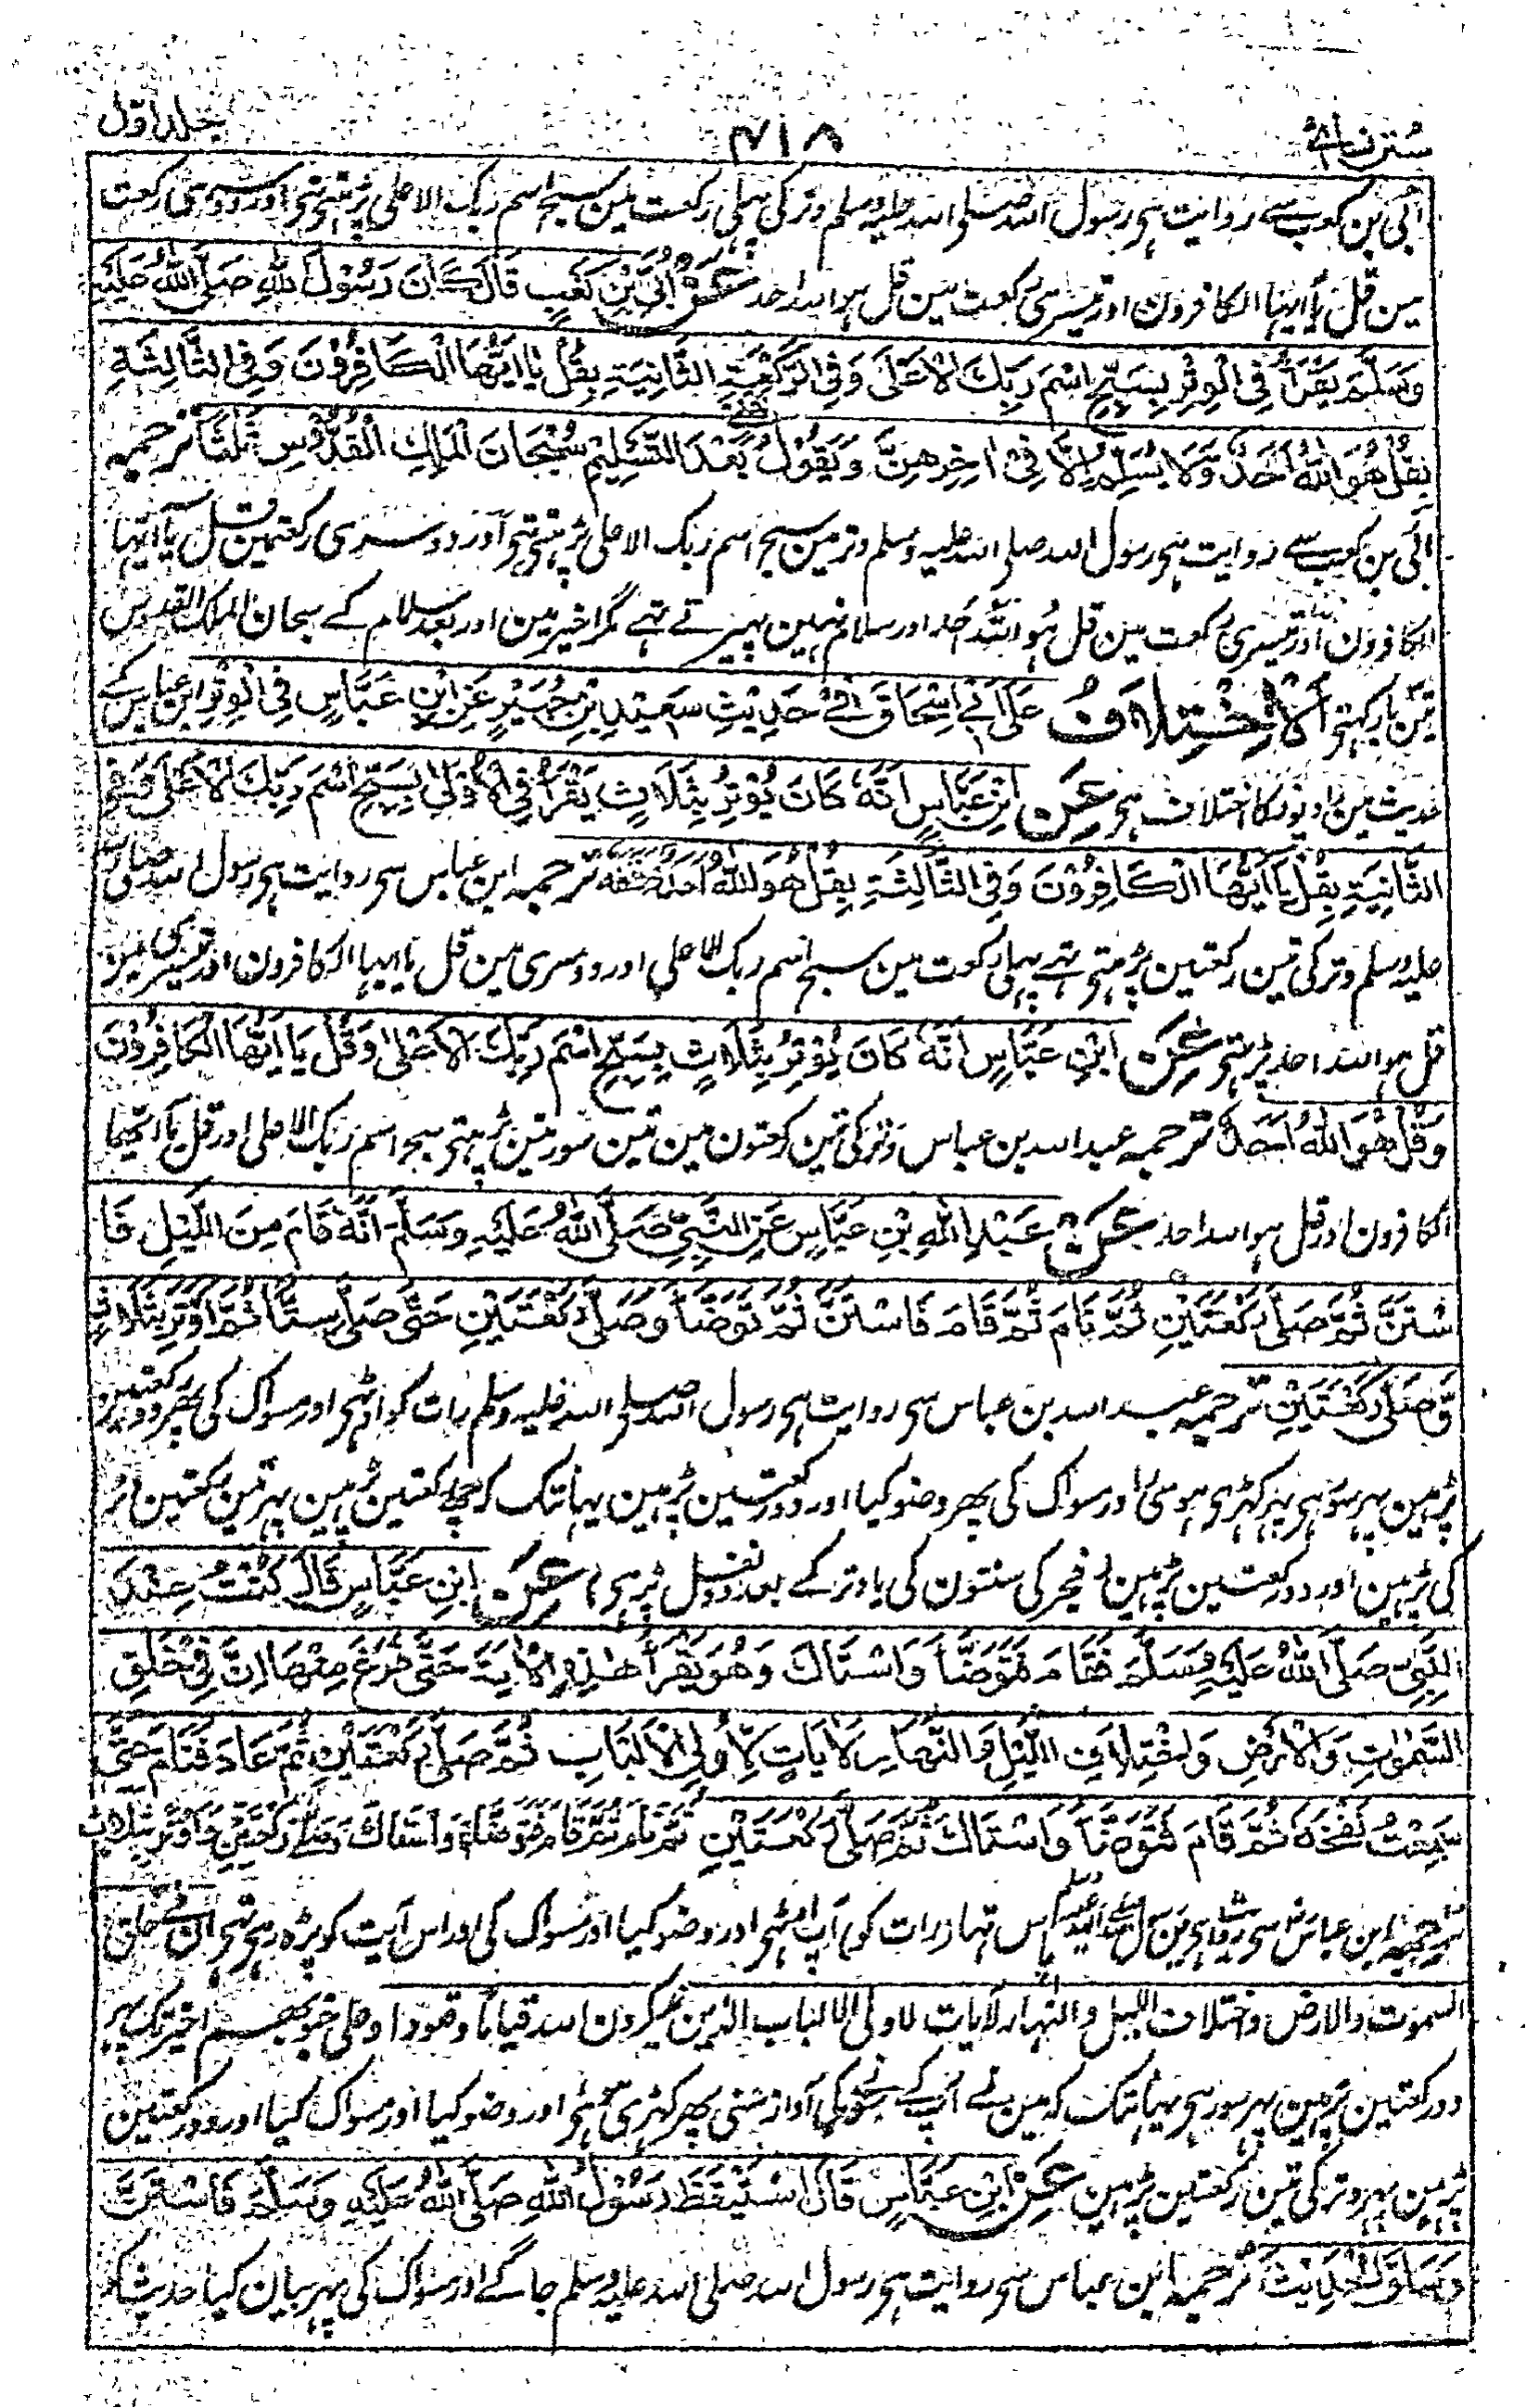 سنن نسائی ۴۱۸ جلد اول
ابی بن کعب سے روایت ہی رسول اللہ صلے اللہ علیہ وسلم وتر کی پہلی رکعت مین سبح اسم ربک الاعلی پڑہتے تہے اور دوسری رکعت
مین قل یا ایہا الکافرون اور تیسری رکعت مین قل ہو اللہ احد عَنْ اُبَیِّ بْنِ کَعْبٍ قَالَ کَانَ رَسُوْلُ اللّٰہِ صَلَّی اللّٰہُ عَلَیْہِ
وَسَلَّمَ یَقْرَأُ فِی الْوِتْرِ بِسَبِّحِ اسْمَ رَبِّکَ الْاَعْلٰی وَفِی الرَّکْعَۃِ الثَّانِیَۃِ بِقُلْ یَا اَیُّہَا الْکَافِرُوْنَ وَفِی الثَّالِثَۃِ
بِقُلْ ہُوَ اللّٰہُ اَحَدٌ وَّلَا یُسَلِّمُ اِلَّا فِیْ اٰخِرِہِنَّ وَیَقُوْلُ یَعْنِیْ بَعْدَ التَّسْلِیْمِ سُبْحَانَ الْمَلِکِ الْقُدُّوْسِ ثَلٰثًا ترجمہ
ابی بن کعب سے روایت ہی رسول اللہ صلی اللہ علیہ وسلم وتر مین سبح اسم ربک الاعلی پڑہتے تہے اور دوسری رکعتمین قل یا ایہا
الکافرون اور تیسری رکعت مین قل ہو اللہ احد اور سلام نہین پہیرتے تہے مگر اخیر مین اور بعد سلام کے سبحان الملک القدوس
تین بار کہتے اَلْاِخْتِلَافُ عَلٰی اَبِیْ اِسْحَاقَ فِیْ حَدِیْثِ سَعِیْدِ بْنِ جُبَیْرٍ عَنِ ابْنِ عَبَّاسٍ فِی الْوِتْرِ ابن عباس کے
حدیث مین راویونکا اختلاف ہی عَنِ ابْنِ عَبَّاسٍ اَنَّہٗ کَانَ یُوْتِرُ بِثَلَاثٍ یَقْرَأُ فِی الْاُوْلٰی بِسَبِّحِ اسْمَ رَبِّکَ الْاَعْلٰی وَفِی
الثَّانِیَۃِ بِقُلْ یَا اَیُّہَا الْکَافِرُوْنَ وَفِی الثَّالِثَۃِ بِقُلْ ہُوَ اللّٰہُ اَحَدٌ ترجمہ ابن عباس سے روایت ہی رسول اللہ صلی اللہ
علیہ وسلم وتر کی تین رکعتین پڑہتے تہے پہلی رکعت مین سبح اسم ربک الاعلی اور دوسری مین قل یا ایہا الکافرون اور تیسری مین
قل ہو اللہ احد پڑہتے عَنِ ابْنِ عَبَّاسٍ اَنَّہٗ کَانَ یُوْتِرُ بِثَلَاثٍ بِسَبِّحِ اسْمَ رَبِّکَ الْاَعْلٰی وَقُلْ یَا اَیُّہَا الْکَافِرُوْنَ
وَقُلْ ہُوَ اللّٰہُ اَحَدٌ ترجمہ عبد اللہ بن عباس وتر کی تین رکعتون مین تین سورتین پڑہتے سبح اسم ربک الاعلی اور قل یا ایہا
الکافرون اور قل ہو اللہ احد عَنْ عَبْدِ اللّٰہِ بْنِ عَبَّاسٍ عَنِ النَّبِیِّ صَلَّی اللّٰہُ عَلَیْہِ وَسَلَّمَ اَنَّہٗ قَامَ مِنَ اللَّیْلِ فَا
سْتَنَّ ثُمَّ صَلّٰی رَکْعَتَیْنِ ثُمَّ نَامَ ثُمَّ قَامَ فَاسْتَنَّ ثُمَّ تَوَضَّأَ وَصَلّٰی رَکْعَتَیْنِ حَتّٰی صَلّٰی سِتًّا ثُمَّ اَوْتَرَ بِثَلَاثٍ
وَّصَلّٰی رَکْعَتَیْنِ ترجمہ عبد اللہ بن عباس سے روایت ہی رسول اللہ صلے اللہ علیہ وسلم رات کو اوٹہے اور مسواک کی پھر دو رکعتین
پڑہین پہر سو رہے پہر کہڑی ہوئی اور مسواک کی پھر وضو کیا اور دو رکعتین پڑہین یہانتک کہ چہے رکعتین پڑہین پہر تین رکعتین وتر
کی پڑہین اور دو رکعتین پڑہین فجر کی سنتون کی یا وتر کے بعد دو نفل پڑہے عَنِ ابْنِ عَبَّاسٍ قَالَ کُنْتُ عِنْدَ
النَّبِیِّ صَلَّی اللّٰہُ عَلَیْہِ وَسَلَّمَ فَقَامَ فَتَوَضَّأَ وَاسْتَاکَ وَہُوَ یَقْرَأُ ہٰذِہِ الْاٰیَۃَ حَتّٰی فَرَغَ مِنْہَا اِنَّ فِیْ خَلْقِ
السَّمٰوٰتِ وَالْاَرْضِ وَاخْتِلَافِ اللَّیْلِ وَالنَّہَارِ لَاٰیَاتٍ لِّاُولِی الْاَلْبَابِ ثُمَّ صَلّٰی رَکْعَتَیْنِ ثُمَّ عَادَ فَنَامَ حَتّٰی
سَمِعْتُ نَفْخَہٗ ثُمَّ قَامَ فَتَوَضَّأَ وَاسْتَاکَ ثُمَّ صَلّٰی رَکْعَتَیْنِ ثُمَّ نَامَ ثُمَّ قَامَ فَتَوَضَّأَ وَاسْتَاکَ وَصَلّٰی رَکْعَتَیْنِ وَاَوْتَرَ بِثَلَاثٍ
ترجمہ ابن عباس سے روایت ہی مین رسول اللہ صلے اللہ علیہ وسلم پاس تہا رات کو آپ اوٹہے اور وضو کیا اور مسواک کی اور اس آیت کو پڑہ رہے تہے ان فی خلق
السموت والارض واختلاف اللیل والنہار لآیات لاولی الالباب الذین یذکرون اللہ قیاما وقعودا وعلی جنوبہم اخیر تک پہر
دو رکعتین پڑہین پہر سو رہے یہانتک کہ مین نے آپ کے آواز سنی پھر کہڑی ہوئے اور وضو کیا اور مسواک کیا اور دو رکعتین
پڑہین پہر وتر کی تین رکعتین پڑہین عَنِ ابْنِ عَبَّاسٍ قَالَ اسْتَیْقَظَ رَسُوْلُ اللّٰہِ صَلَّی اللّٰہُ عَلَیْہِ وَسَلَّمَ فَاسْتَنَّ
وَسَاقَ الْحَدِیْثَ ترجمہ ابن عباس سے روایت ہی رسول اللہ صلی اللہ علیہ وسلم جاگے اور مسواک کی پہر بیان کیا حدیث کو